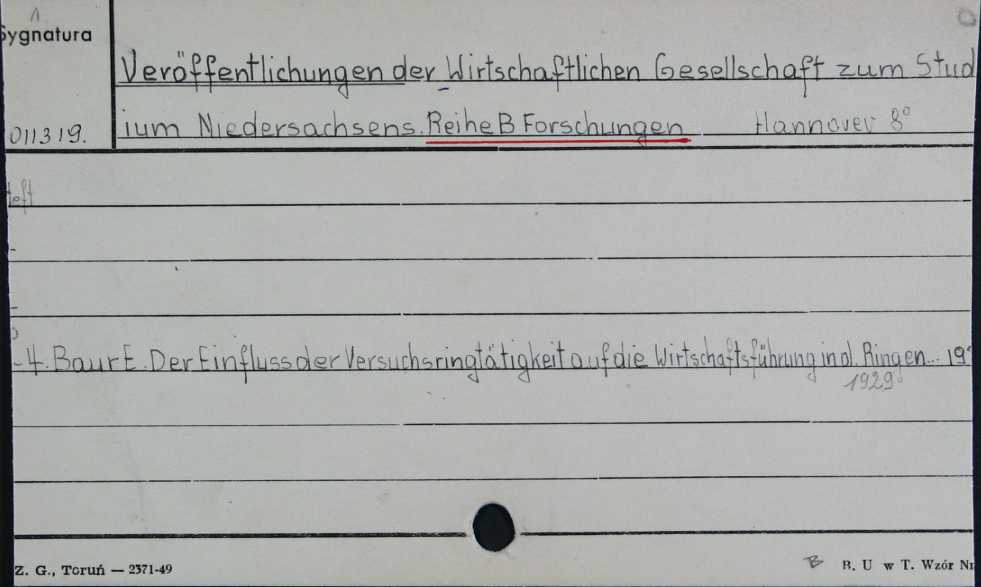 Sygnatura
Veröffentlichungen der Wirtschaftlichen Gesellschaft zum Stud
011319.
ium Niedersachsens. Reihe B Forschungen Hannover 8°
Heft
-4. Baur E. Der Einfluss der Versuchsringtätigkeit auf die Wirtschaftsführung in d. Ringen... 19
1929
Z. G., Toruń — 2371-49
B B. U w T. Wzór Nr